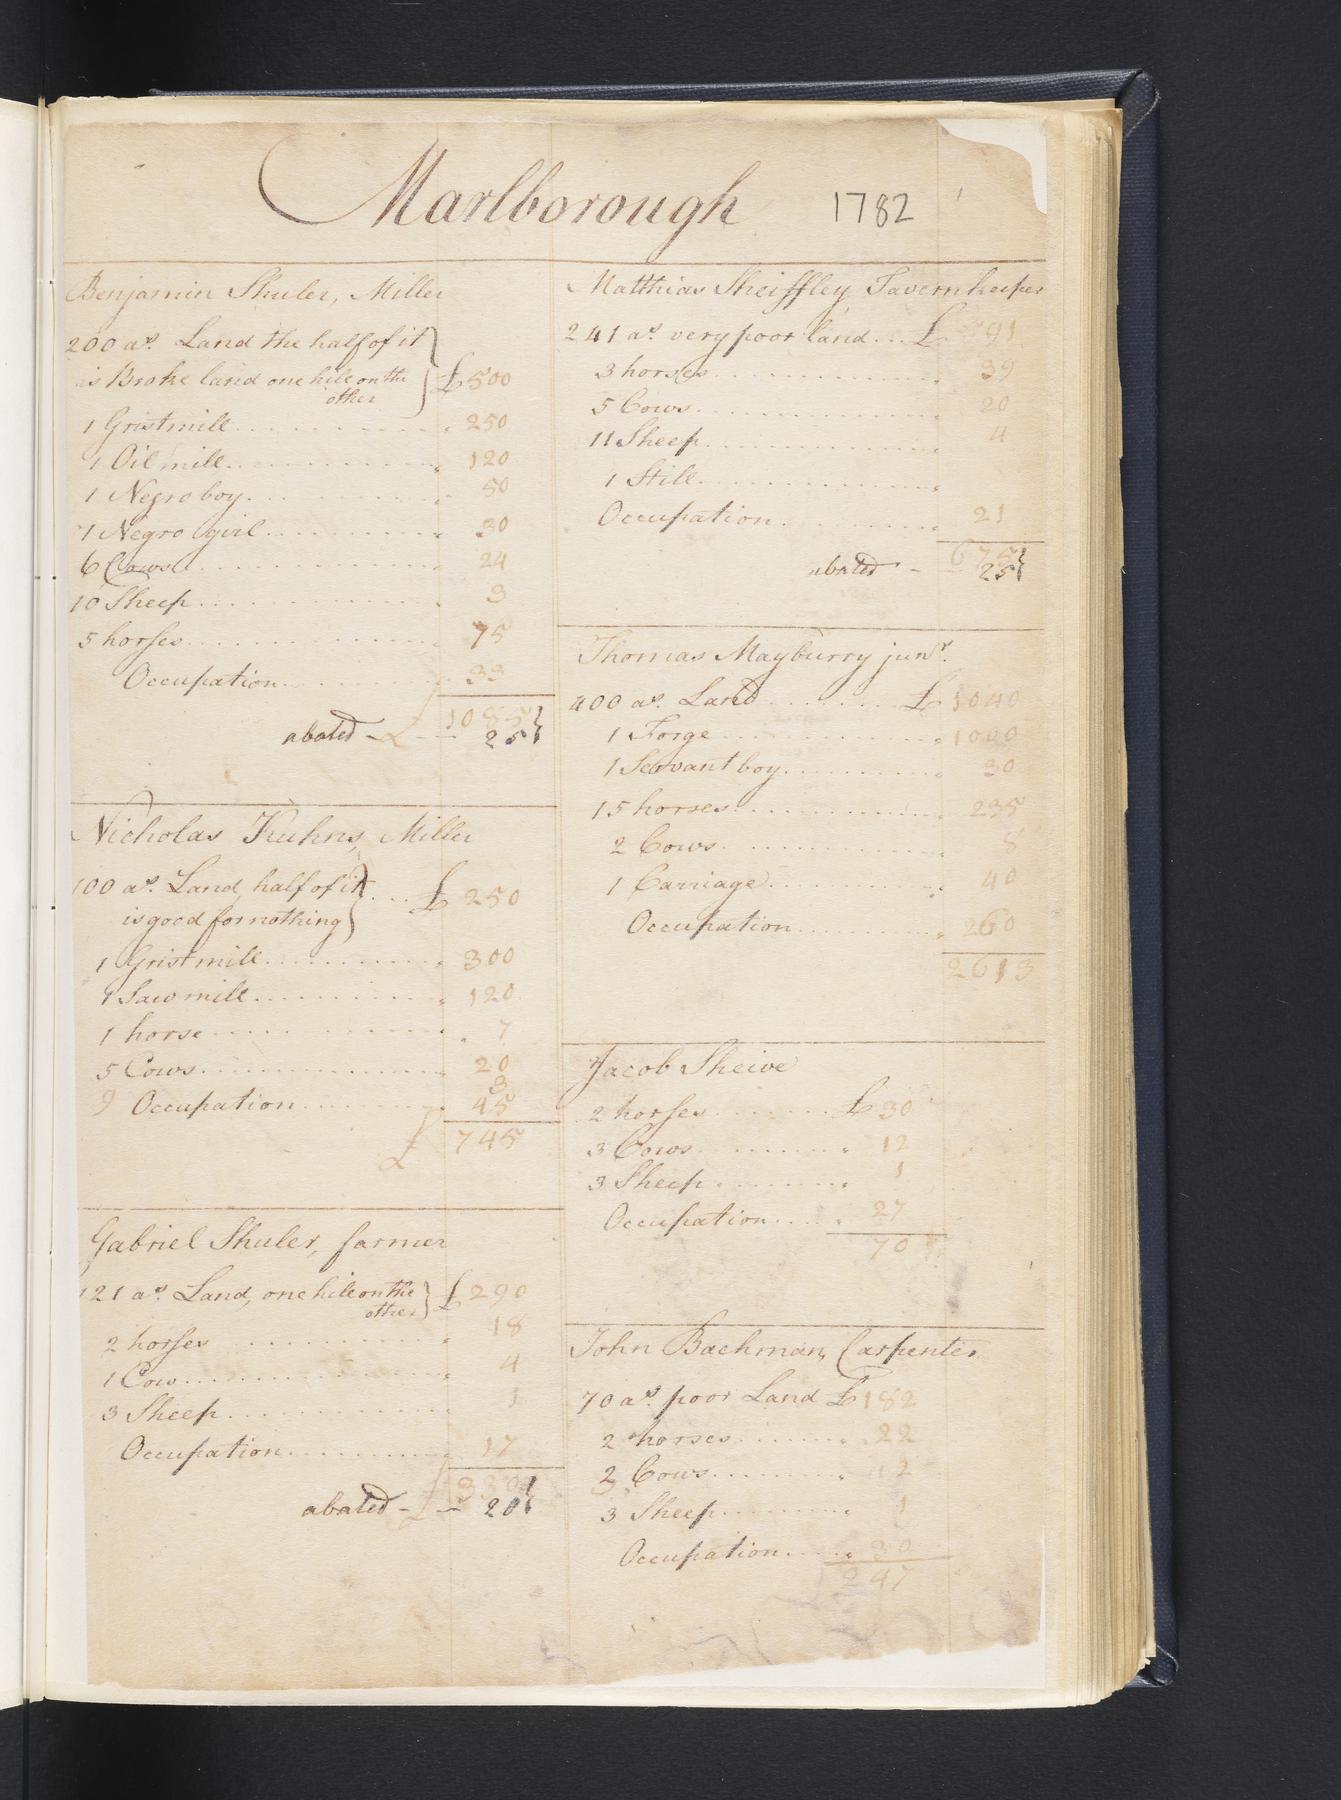 Marlborough 1782
Benjamin Shuler, Miller
200 as. Land the half of it
is Broke land one hile on the
other
£ 500
1 Gristmill 250
1 Oil mill 120
1 Negro boy 50
1 Negro girl 30
6 Cows 24
10 Sheep 3
5 horses 75
Occupation 33
£ 1085
abated - 25
Nicholas Kuhns, Miller
100 as. Land, half of it
is good for nothing
£ 250
1 Gristmill 300
1 Sawmill 120
1 horse 7
5 Cows 20
9 3
Occupation 45
£ 745
Gabriel Shuler, farmer
121 as. Land, one hile on the
other
£ 290
2 horses 18
1 Cow 4
3 Sheep 1
Occupation 17
£ 330
abated - - 20
Matthias Sheiffley, Tavernkeeper
241 as. very poor land £ 591
3 horses 39
5 Cows 20
11 Sheep 4
1 Still
Occupation 21
675
abated - 25
Thomas Mayburry junr.
400 as. Land £ 1040
1 Forge 1000
1 Servant boy 30
15 horses 235
2 Cows 8
1 Carriage 40
Occupation 260
2613
Jacob Sheive
2 horses £ 30
3 Cows 12
3 Sheep 1
Occupation 27
70
John Bachman, Carpenter
70 as. poor Land £ 182
2 horses 22
3 Cows 12
3 Sheep 1
Occupation 30
247